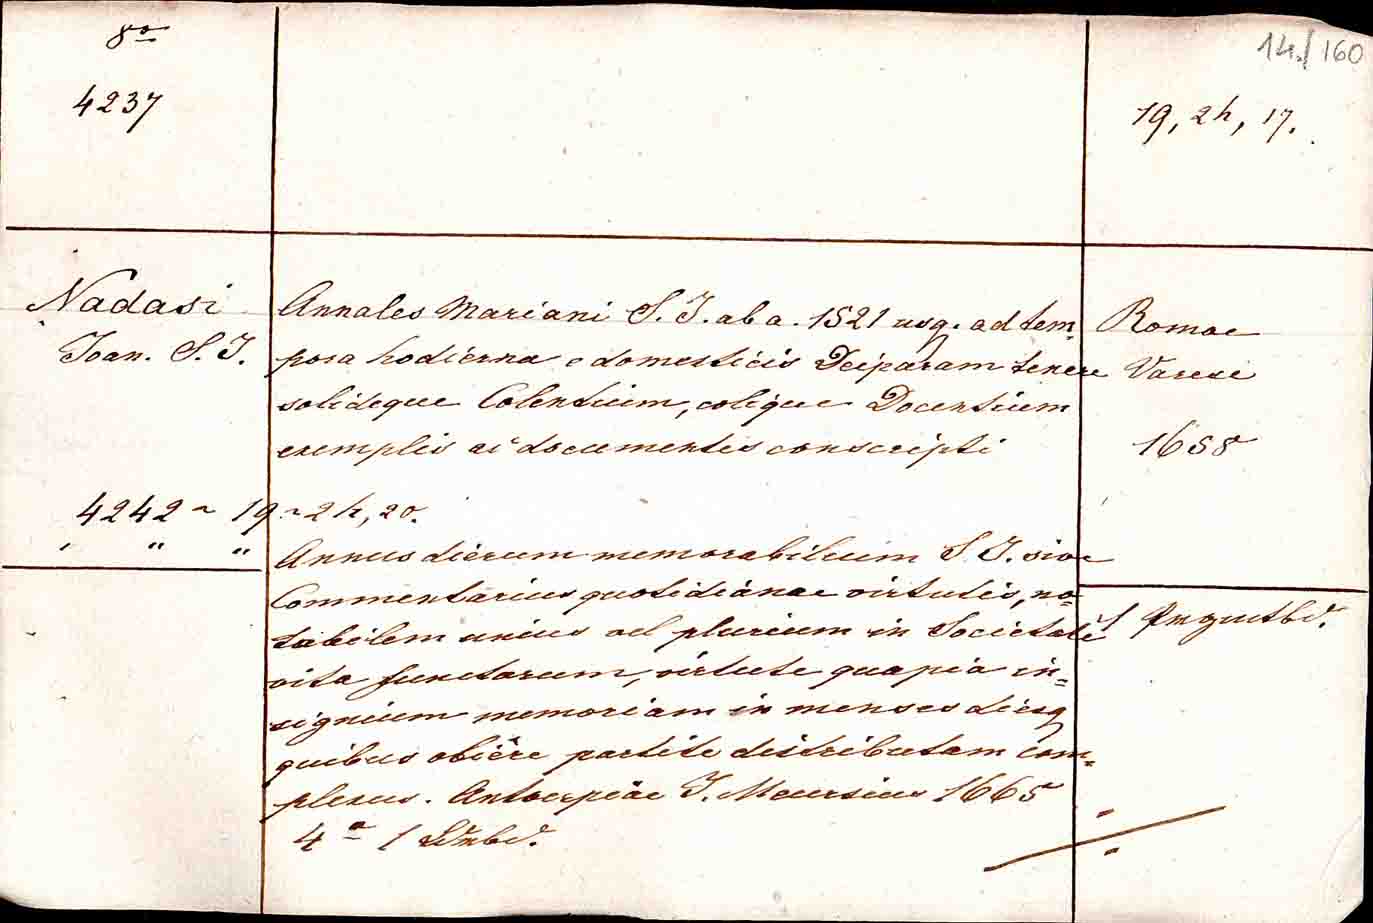 8o
4237
14./160
19, 2h, 17.
Nadasi
Joan. S. J.
Annales Mariani S. J. ab a. 1521 usq. ad tem-
pora hodierna e domesticis Deiparam tenere
solideque Colentium, colique Docentium
exemplis ac documentis conscripti
Romae
Varese
1658
1 Prgmtbd.
4242 ~ 19 ~ 2h, 20.
" " "
Annus dierum memorabilium S. J. sive
Commentarius quotidianae virtutis, no-
tabilem unius vel plurium in Societate
vita functorum, virtute quapia in=
signium memoriam in menses diesq
quibus obiere partite distributam com=
plexus. Antverpiae J. Meursius 1665
4o 1 Ldrbd.